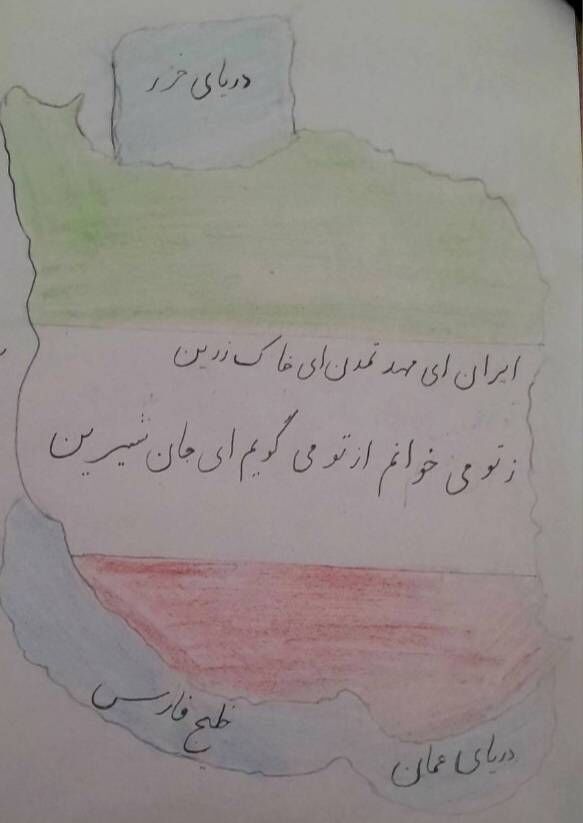 دریای خزر
ایران ای مهد تمدن ای خاک زرین
ز تو می خوانم از تو می گویم ای جان شیرین
خلیج فارس
دریای عمان